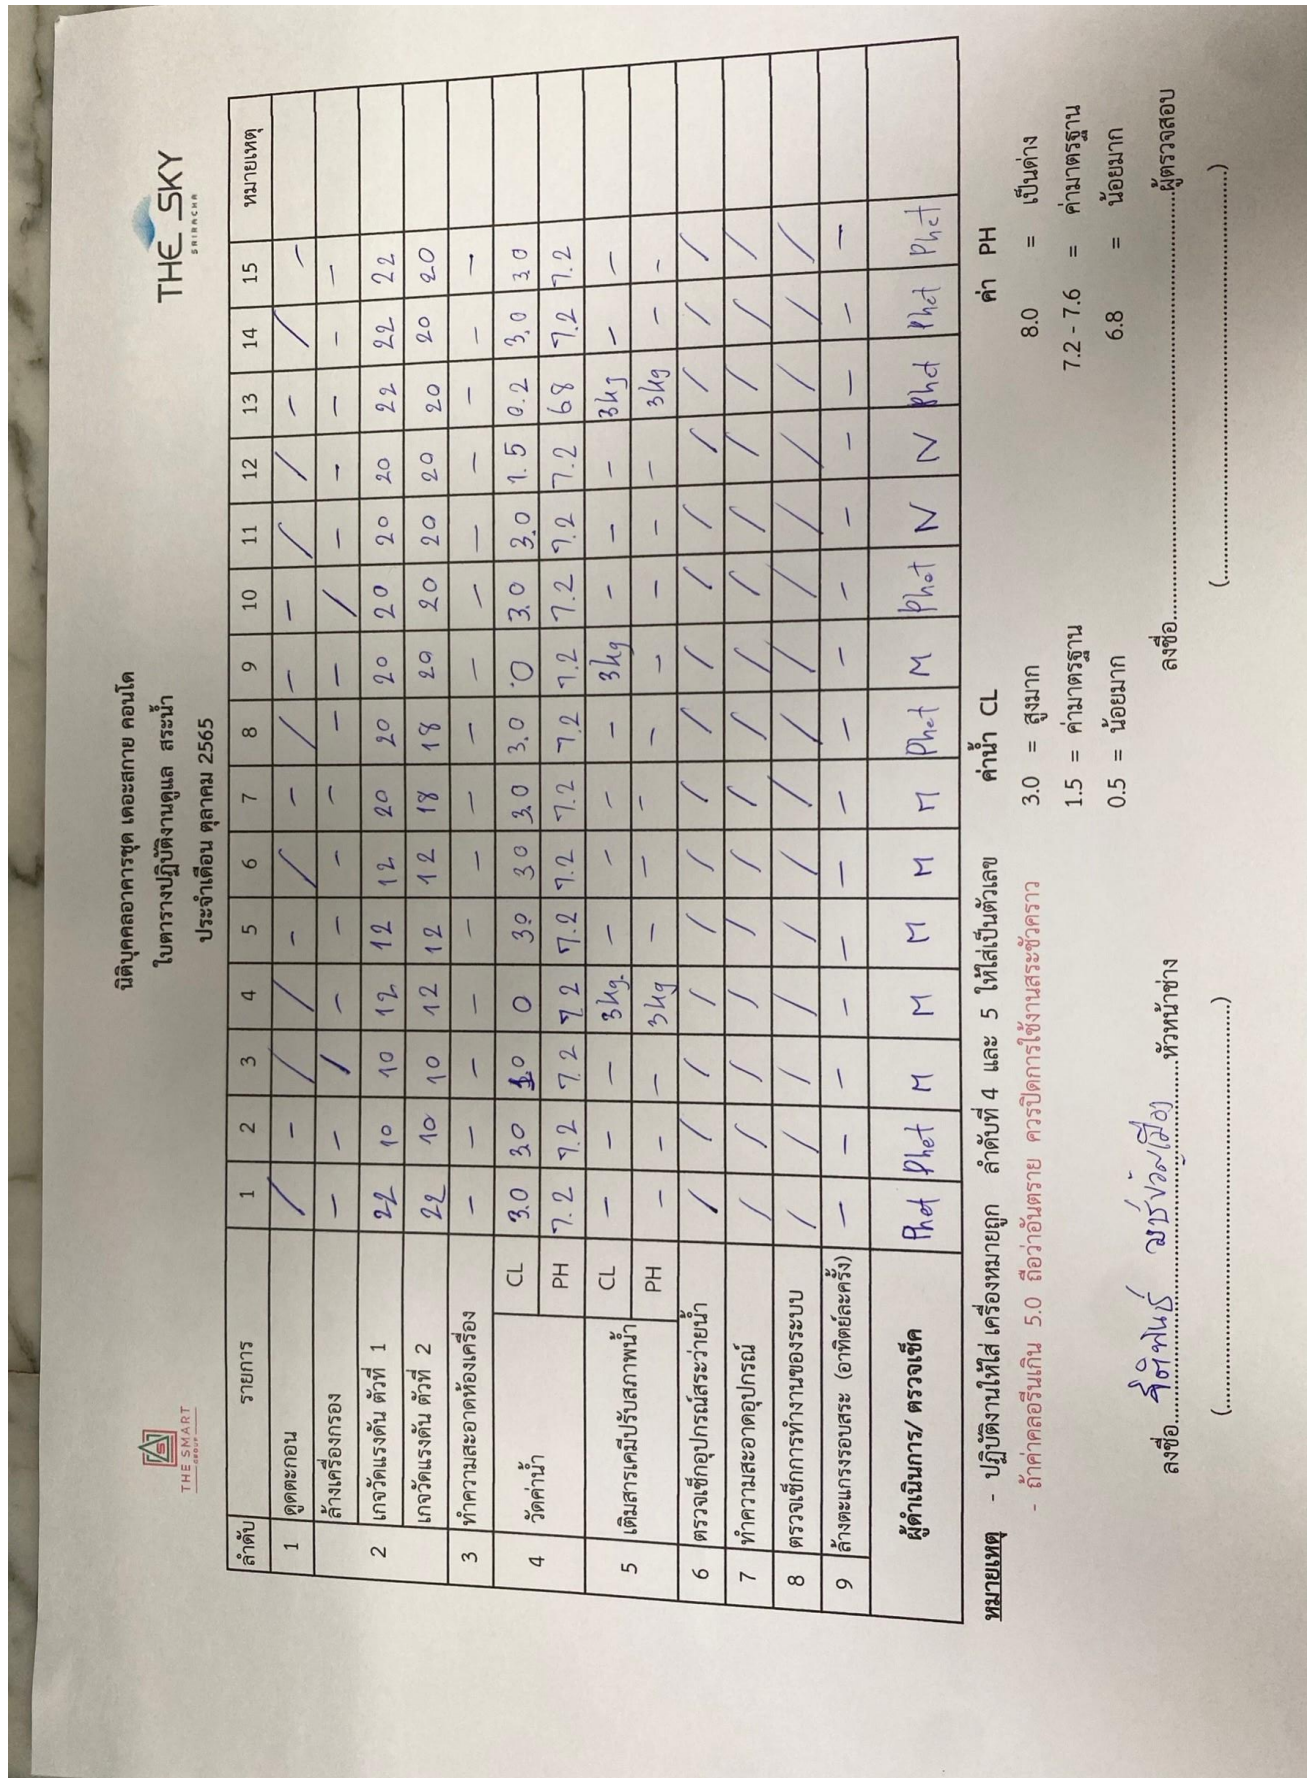 THE SMART
GROUP
THE SKY
SRIRACHA
นิติบุคคลอาคารชุด เดอะสกาย คอนโด
ใบตารางปฏิบัติงานดูแล สระน้ำ
ประจำเดือน ตุลาคม 2565
ลำดับ รายการ 1 2 3 4 5 6 7 8 9 10 11 12 13 14 15 หมายเหตุ
1 ดูดตะกอน / - / / - / - / - - / / - / -
2 ล้างเครื่องกรอง - - / - - - - - - / - - - - -
เกจวัดแรงดัน ตัวที่ 1 22 10 10 12 12 12 20 20 20 20 20 20 22 22 22
เกจวัดแรงดัน ตัวที่ 2 22 10 10 12 12 12 18 18 20 20 20 20 20 20 20
3 ทำความสะอาดห้องเครื่อง - - - - - - - - - - - - - - -
4 วัดค่าน้ำ CL 3.0 3.0 3.0 0 3.0 30 3.0 3.0 0 3.0 3.0 1.5 0.2 3.0 3.0
PH 7.2 7.2 7.2 7.2 7.2 7.2 7.2 7.2 7.2 7.2 7.2 7.2 68 7.2 7.2
5 เติมสารเคมีปรับสภาพน้ำ CL - - - 3kg. - - - - 3kg - - - 3kg - -
PH - - - 3kg - - - - - - - - 3kg - -
6 ตรวจเช็กอุปกรณ์สระว่ายน้ำ / / / / / / / / / / / / / / /
7 ทำความสะอาดอุปกรณ์ / / / / / / / / / / / / / / /
8 ตรวจเช็กการทำงานของระบบ / / / / / / / / / / / / / / /
9 ล้างตะแกรงรอบสระ (อาทิตย์ละครั้ง) - - - - - - - - - - - - - - -
ผู้ดำเนินการ/ ตรวจเช็ค Phet Phet M M M M M Phet M Phet N N Phet Phet Phet
หมายเหตุ - ปฏิบัติงานให้ใส่ เครื่องหมายถูก ลำดับที่ 4 และ 5 ให้ใส่เป็นตัวเลข ค่าน้ำ CL ค่า PH
- ถ้าค่าคลอรีนเกิน 5.0 ถือว่าอันตราย ควรปิดการใช้งานสระชั่วคราว 3.0 = สูงมาก 8.0 = เป็นด่าง
1.5 = ค่ามาตรฐาน 7.2 - 7.6 = ค่ามาตรฐาน
0.5 = น้อยมาก 6.8 = น้อยมาก
ลงชื่อ..........หัวหน้าช่าง ลงชื่อ..........ผู้ตรวจสอบ
(..........) (..........)